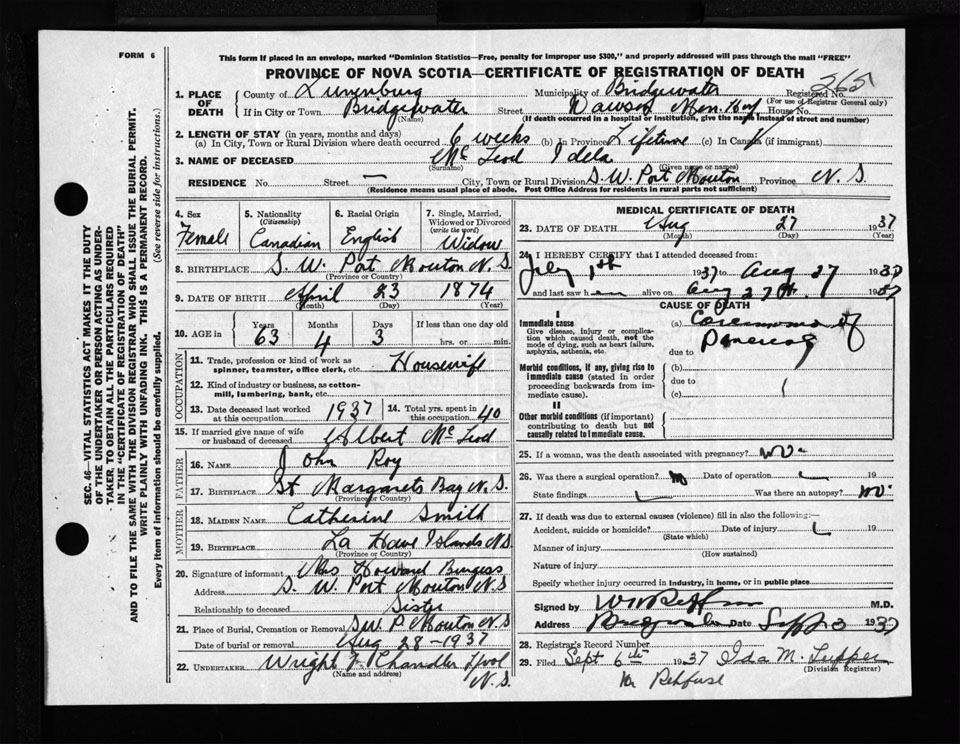 FORM 6
This form if placed in an envelope, marked "Dominion Statistics—Free, penalty for improper use $300," and properly addressed will pass through the mail "FREE"
PROVINCE OF NOVA SCOTIA—CERTIFICATE OF REGISTRATION OF DEATH
265
1. PLACE OF DEATH
County of Lunenburg Municipality of Bridgewater Registered No.
(For use of Registrar General only)
If in City or Town Bridgewater Street Dawson Mem. Hosp House No.
(Name) (If death occurred in a hospital or institution, give the name instead of street and number)
2. LENGTH OF STAY (in years, months and days)
(a) In City, Town or Rural Division where death occurred 6 weeks (b) in Province Lifetime (c) In Canada (if immigrant)
3. NAME OF DECEASED McLeod Idela
(Surname) (Given name or names)
RESIDENCE No. Street — City, Town or Rural Division S. W. Port Mouton Province N. S.
(Residence means usual place of abode. Post Office Address for residents in rural parts not sufficient)
4. Sex Female
5. Nationality (Citizenship) Canadian
6. Racial Origin English
7. Single, Married, Widowed or Divorced (write the word) Widow
8. BIRTHPLACE S. W. Port Mouton N. S
(Province or Country)
9. DATE OF BIRTH April 23 1874
(Month) (Day) (Year)
10. AGE in Years 63 Months 4 Days 3 If less than one day old hrs. or min.
OCCUPATION
11. Trade, profession or kind of work as spinner, teamster, office clerk, etc. Housewife
12. Kind of industry or business, as cotton-mill, lumbering, bank, etc.
13. Date deceased last worked at this occupation 1937
14. Total yrs. spent in this occupation 40
15. If married give name of wife or husband of deceased Albert McLeod
FATHER
16. NAME John Roy
17. BIRTHPLACE St Margarets Bay N. S.
(Province or Country)
MOTHER
18. MAIDEN NAME Catherine Smith
19. BIRTHPLACE La Have Islands N S
(Province or Country)
20. Signature of informant Mrs Howard Burgess
Address S. W. Port Mouton N. S
Relationship to deceased Sister
21. Place of Burial, Cremation or Removal S.W. P. Mouton N. S
Date of burial or removal Aug 28 - 1937
22. UNDERTAKER Wright J. Chandler Lpool
(Name and address) N. S.
MEDICAL CERTIFICATE OF DEATH
23. DATE OF DEATH Aug 27 1937
(Month) (Day) (Year)
24. I HEREBY CERTIFY that I attended deceased from:
July 1st 1937 to Aug 27 1937
and last saw h alive on Aug 27th. 1937
CAUSE OF DEATH
I
Immediate cause
Give disease, injury or complication which caused death, not the mode of dying, such as heart failure, asphyxia, asthenia, etc.
(a) Carcinoma of Pancreas
due to
Morbid conditions, if any, giving rise to immediate cause (stated in order proceeding backwards from immediate cause).
(b)
due to
(c)
II
Other morbid conditions (if important) contributing to death but not causally related to immediate cause.
25. If a woman, was the death associated with pregnancy? no.
26. Was there a surgical operation? no Date of operation 19
State findings Was there an autopsy? no.
27. If death was due to external causes (violence) fill in also the following:—
Accident, suicide or homicide? Date of injury 19
(State which)
Manner of injury
(How sustained)
Nature of injury
Specify whether injury occurred in industry, in home, or in public place
Signed by M.D.
Address Bridgewater Date Sept 3 1937
28. Registrar's Record Number
29. Filed Sept 6th 1937 Ida M. Tupper
(Division Registrar)
Per Rehfuse
SEC. 46—VITAL STATISTICS ACT MAKES IT THE DUTY OF THE UNDERTAKER OR PERSON ACTING AS UNDERTAKER, TO OBTAIN ALL THE PARTICULARS REQUIRED IN THE "CERTIFICATE OF REGISTRATION OF DEATH" AND TO FILE THE SAME WITH THE DIVISION REGISTRAR WHO SHALL ISSUE THE BURIAL PERMIT.
WRITE PLAINLY WITH UNFADING INK. THIS IS A PERMANENT RECORD.
Every item of information should be carefully supplied. (See reverse side for instructions.)